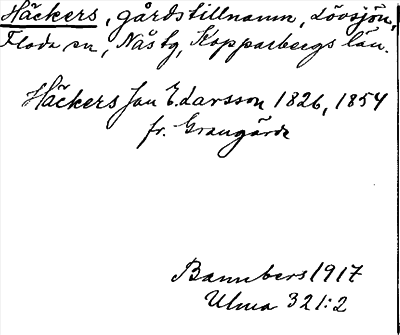 Häckers, gårdstillnamn, Lövsjön,
Floda sn, Nås tg, Kopparbergs län.
Häckers Jan E. Larsson 1826, 1854
fr. Grangärde
Bannbers 1917
Ulma 321:2